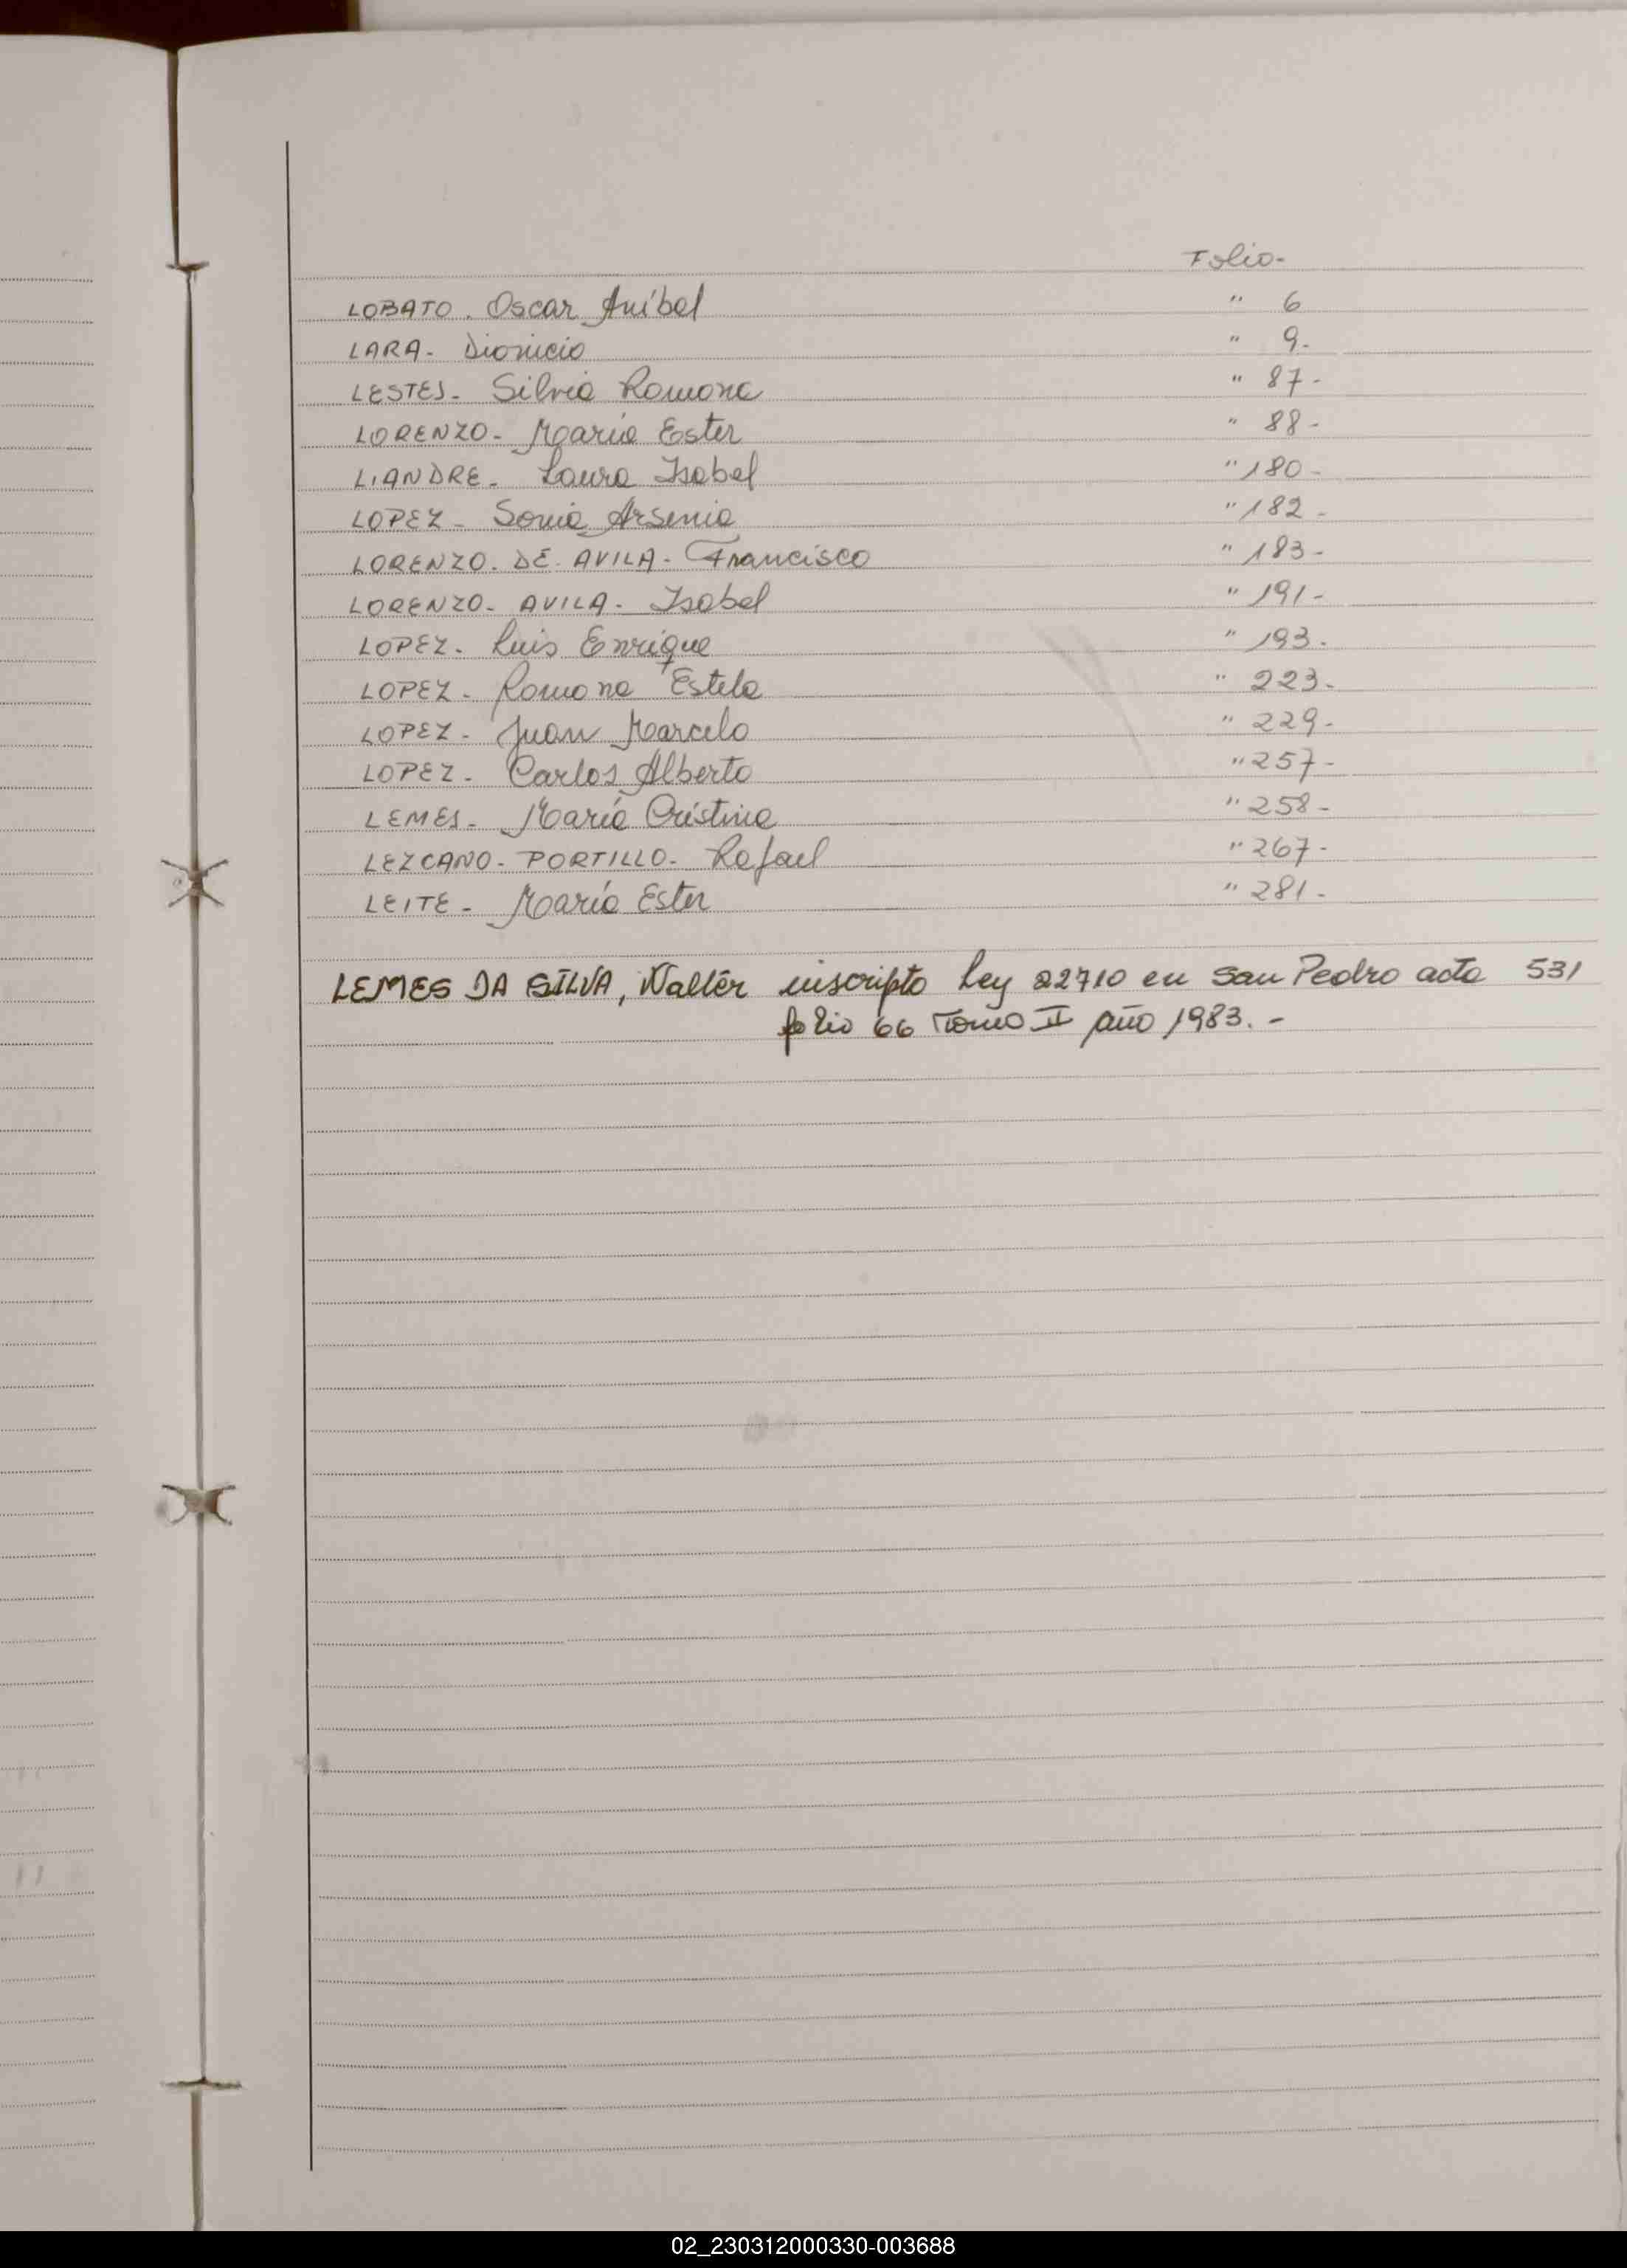 Folio-
LOBATO. Oscar Anibel " 6
LARA- Dionicio " 9-
LESTES- Silvia Ramona " 87-
LORENZO- María Ester " 88-
LIANDRE- Laura Isabel " 180-
LOPEZ- Sonia Arsenia " 182-
LORENZO. DE. AVILA- Francisco " 183-
LORENZO- AVILA- Isabel " 191-
LOPEZ- Luis Enrique " 193-
LOPEZ- Ramona Estela " 223-
LOPEZ- Juan Marcelo " 229-
LOPEZ- Carlos Alberto " 257-
LEMES- María Cristina " 258-
LEZCANO- PORTILLO- Rafael " 267-
LEITE- María Ester " 281-
LEMES DA SILVA, Walter inscripto Ley 22710 en San Pedro acta 531
folio 66 Tomo II año 1983.-
02_230312000330-003688